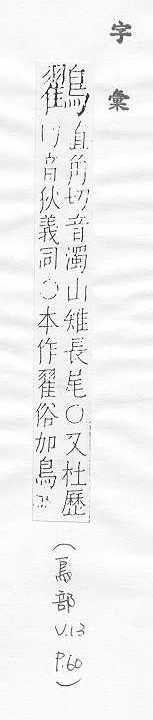 字彙
鸐
直角切音濁山雉長尾○又杜歷
切音狄義同○本作翟俗加鳥非
(鳥部 V.13 P.60)